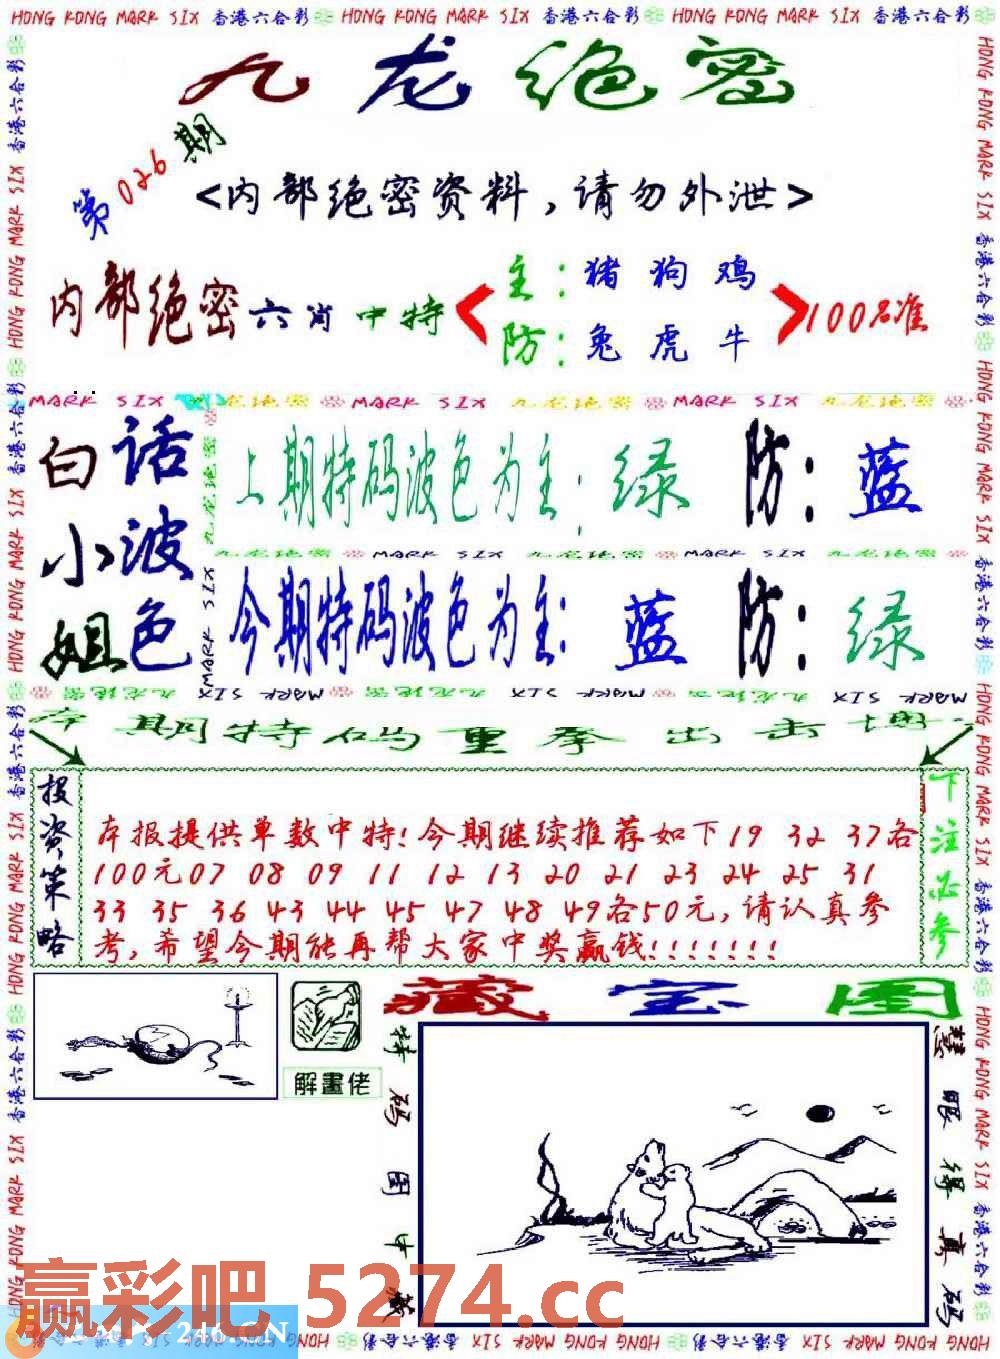 HONG KONG MARK SIX 香港六合彩 HONG KONG MARK SIX 香港六合彩 HONG KONG MARK SIX 香港六合彩
九龙绝密
第026期
<内部绝密资料,请勿外泄>
内部绝密六肖中特
主:猪狗鸡
防:兔虎牛
100%准
MARK SIX 九龙绝密 MARK SIX 九龙绝密 MARK SIX 九龙绝密
白小姐
话波色
上期特码波色为主:绿 防:蓝
九龙绝密 MARK SIX 九龙绝密 MARK SIX 九龙绝密
今期特码波色为主:蓝 防:绿
本期特码重拳出击
投资策略
本报提供单数中特!今期继续推荐如下19 32 37各
100元07 08 09 11 12 13 20 21 23 24 25 31
33 35 36 43 44 45 47 48 49各50元,请认真参
考,希望今期能再帮大家中奖赢钱!!!!!!!
下注必参
藏宝图
解畫佬
特码图中藏
慧眼得真码
赢彩吧 5274.cc
246.CN